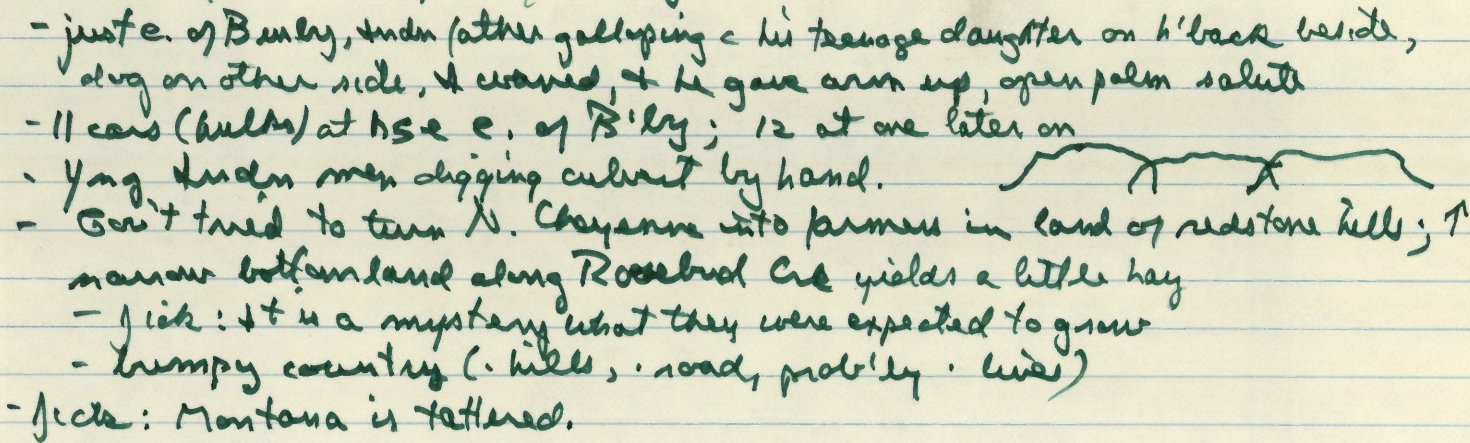 - just e. of Busby, Indn father galloping c his teenage daughter on h'back beside,
dog on other side. I waved, & he gave arm up, open palm salute
- 11 cars (hulks) at hse e. of B'by; 12 at one later on
- Yng Indn men digging culvert by hand.
- Gov't tried to turn N. Cheyenne into farmers in land of redstone hills; ↑
narrow bottomland along Rosebud Crk yields a little hay
- Jick: It is a mystery what they were expected to grow
- bumpy country (· hills, · road, prob'ly · lives)
- Jick: Montana is tattered.